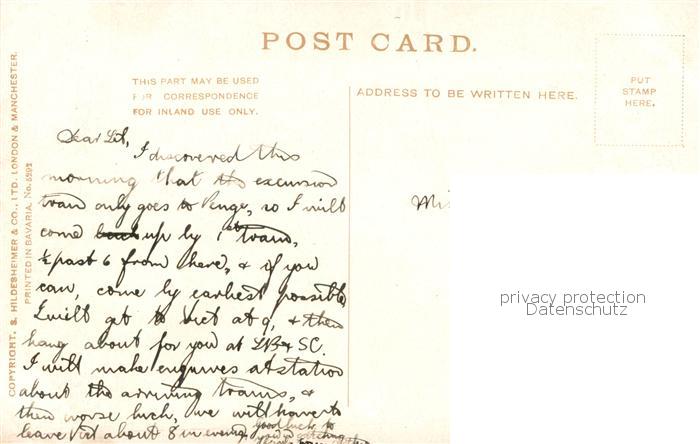 POST CARD.
THIS PART MAY BE USED
FOR CORRESPONDENCE
FOR INLAND USE ONLY.
ADDRESS TO BE WRITTEN HERE.
PUT
STAMP
HERE.
COPYRIGHT. S. HILDESHEIMER & CO., LTD. LONDON & MANCHESTER.
PRINTED IN BAVARIA. No.
Dear Lil,
I discovered this
morning that the excursion
train only goes to Penge, so I will
come back up by 1st train,
½ past 6 from here, & if you
can, come by earliest possible,
I will get to Vict at 9, & then
hang about for you at LB & SC.
I will make enquires at station
about the arriving trains, &
then worse luck, we will have to
leave Vict about 8 in evening
good luck to
privacy protection
Datenschutz